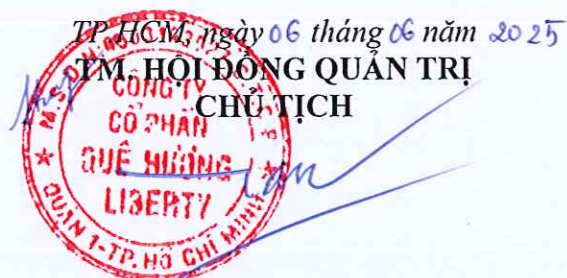 TP.HCM, ngày 06 tháng 06 năm 2025
TM. HỘI ĐỒNG QUẢN TRỊ
CHỦ TỊCH
CÔNG TY
CỔ PHẦN
QUÊ HƯƠNG
LIBERTY
QUẬN 1-TP. HỒ CHÍ MINH